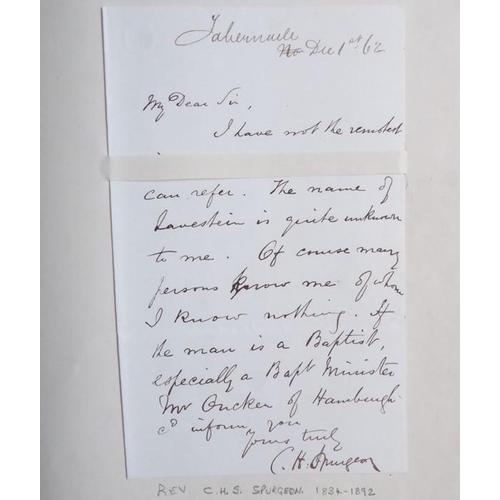 Tabernacle
No Dec 1st/62
My Dear Sir,
I have not the remotest
can refer. The name of
Lavestein is quite unknown
to me. Of course many
persons know me of whom
I know nothing. If
the man is a Baptist,
especially a Bapt Minister
Mr Oncken of Hamburgh
cd inform you
yours truly
C. H. Spurgeon
REV. C. H. S. SPURGEON. 1834-1892